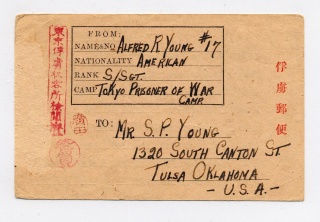 FROM:
NAME&NO ALFRED R. YOUNG #17
NATIONALITY AMERICAN
RANK S/SGT.
CAMP TOKYO PRISONER OF WAR
CAMP.
俘虜郵便
東京俘虜収容所検閲済
TO:
MR S. P. YOUNG
1320 SOUTH CANTON ST.
TULSA OKLAHOMA
- U.S.A. -